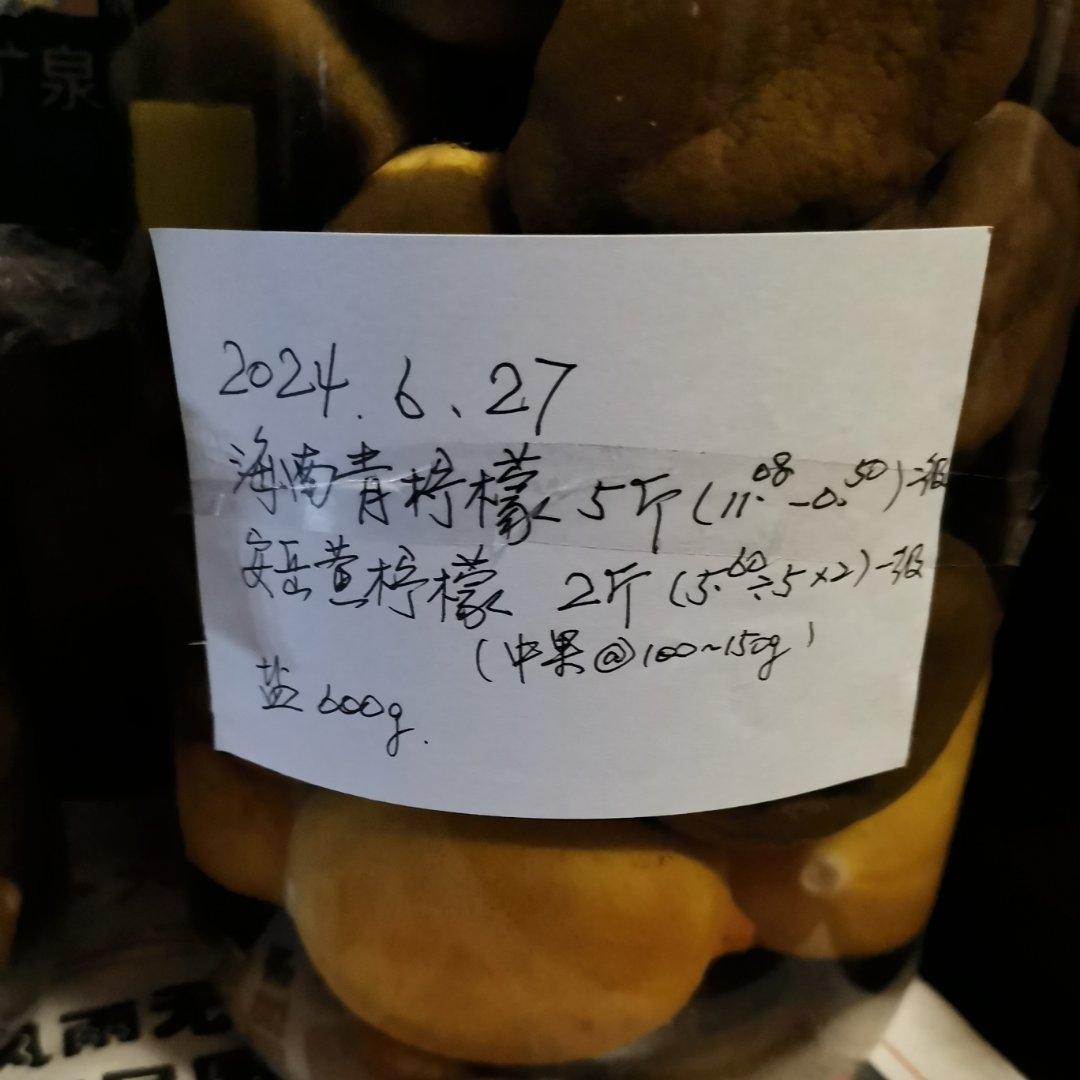 泉
2024.6、27
海南青柠檬 5斤(11.08-0.50)二级
安岳黄柠檬 2斤(5.60÷5×2)一级
(中果@100~150g)
盐600g.
风雨无